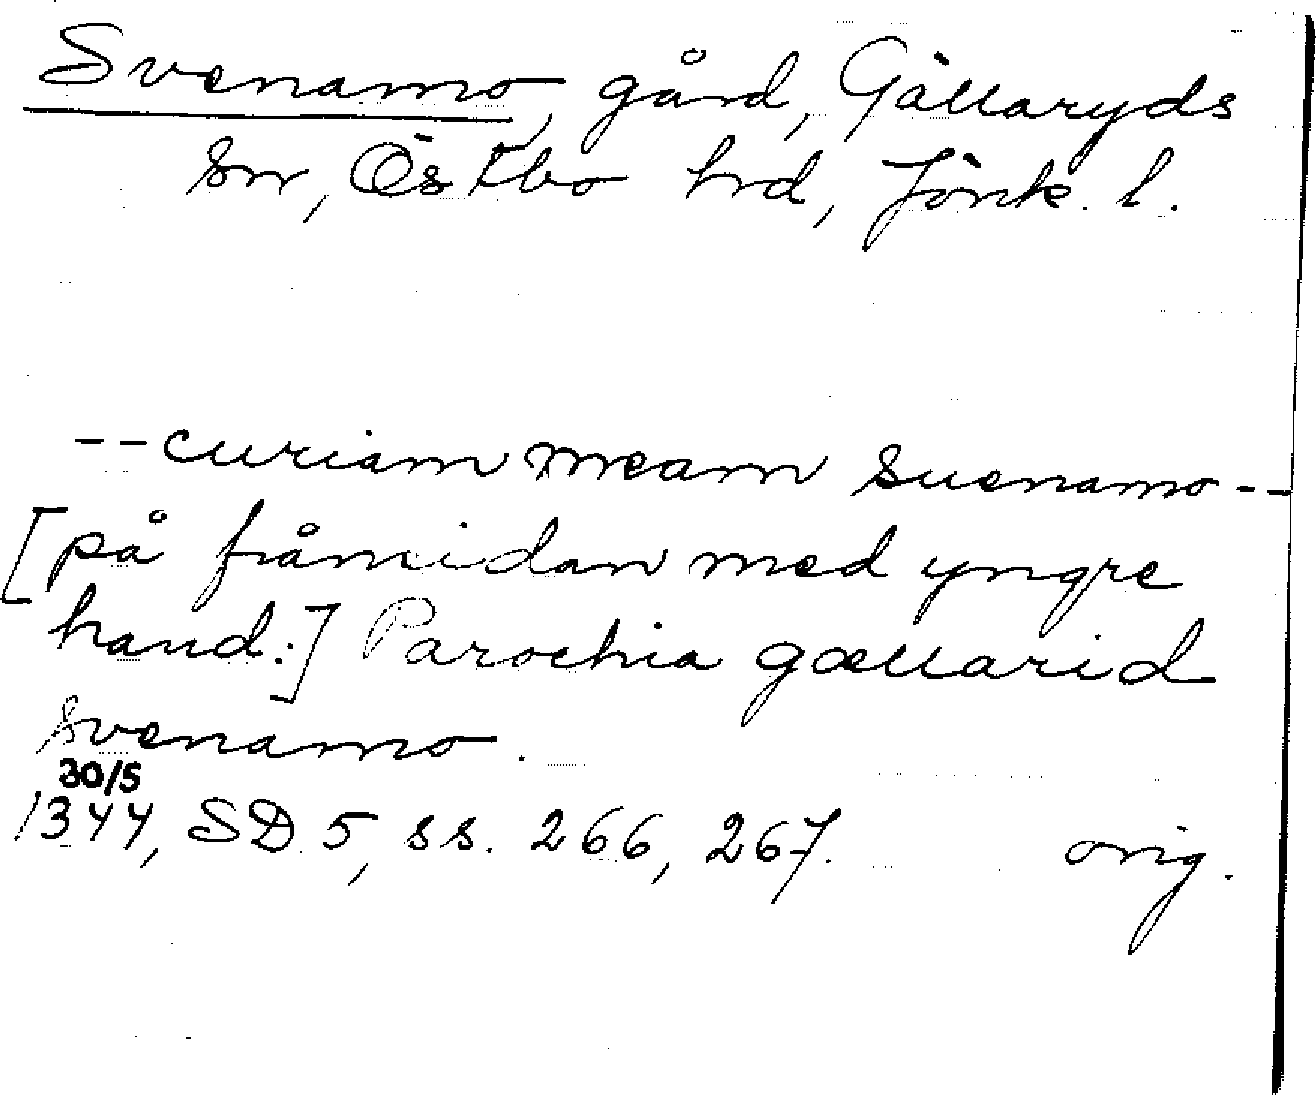 Svenamo, gård, Gällaryds
sn, Östbo hd, Jönk. l.
-- curiam meam suenamo --
[på frånsidan med yngre
hand:] Parochia gællarid
svenamo.
30/5
1344, SD 5, ss. 266, 267. orig.